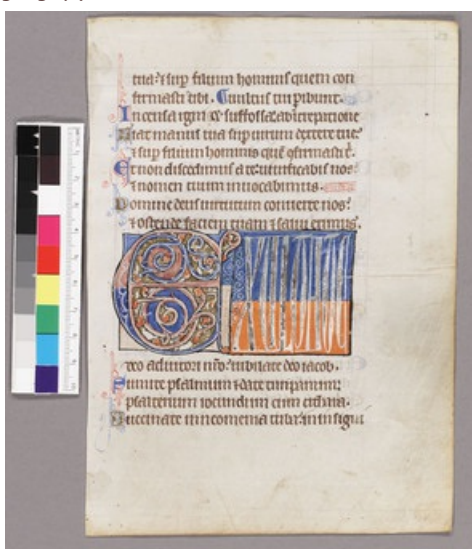 tua: ⁊ sup filium hominis quem con
firmasti tibi. vultus tui pibunt.
Incensa igni ⁊ suffossa: ab increpatione
Fiat manus tua sup virum dextere tue
⁊ sup filium hominis quē ꝯfirmasti t.
Et non discedimus a te: vivificabis nos
⁊ nomen tuum invocabimus.
Domine deus virtutum converte nos:
⁊ ostende faciem tuam ⁊ salvi erimus.
E
deo adiutori nr̄o: iubilate deo iacob.
Sumite psalmum ⁊ date timpanum:
psalterium iocundum cum cithara.
Buccinate in neomenia tuba: in insigni